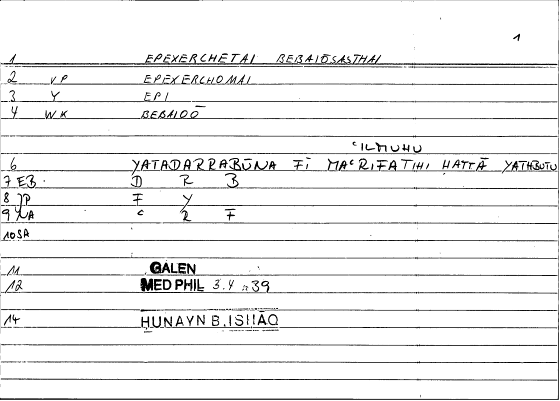 1
1 EPEXERCHETAI BEBAIŌSASTHAI
2 VP EPEXERCHOMAI
3 Y EPI
4 WK BEBAIOŌ
ʿILMUHU
6 YATADARRABŪNA FĪ MAʿRIFATIHI HATTĀ YATHBUTU
7 EB D R B
8 JP F Y
9 NA ʿ R F
10 SA
11 GALEN
12 MED PHIL 3.4 39
14 HUNAYN B. ISHĀQ